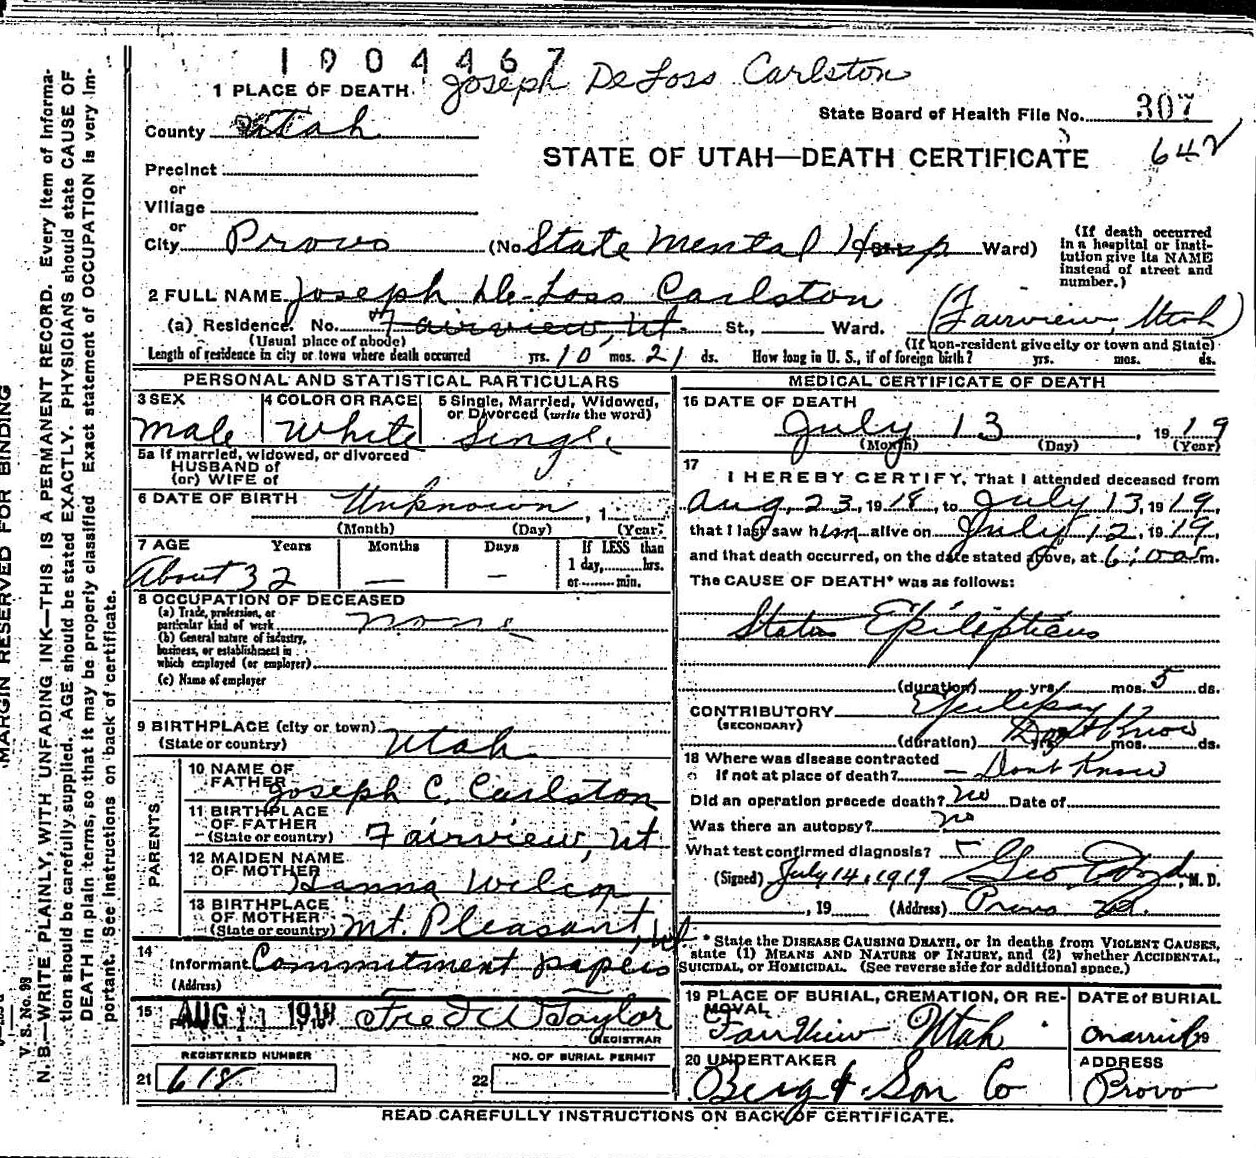 1904467
Joseph DeLoss Carlston
1 PLACE OF DEATH
State Board of Health File No. 307
County Utah
STATE OF UTAH—DEATH CERTIFICATE
642
Precinct
or
Village
or
City Provo (No State Mental Hosp Ward)
(If death occurred
in a hospital or insti-
tution give its NAME
instead of street and
number.)
2 FULL NAME Joseph De-Loss Carlston
(a) Residence. No. Fairview, Ut. St., Ward. (Fairview, Utah)
(Usual place of abode) (If non-resident give city or town and State)
Length of residence in city or town where death occurred yrs. 10 mos. 21 ds. How long in U. S., if of foreign birth? yrs. mos. ds.
PERSONAL AND STATISTICAL PARTICULARS
3 SEX 4 COLOR OR RACE 5 Single, Married, Widowed,
or Divorced (write the word)
Male White Single
5a If married, widowed, or divorced
HUSBAND of
(or) WIFE of
6 DATE OF BIRTH Unknown, 1
(Month) (Day) (Year)
7 AGE Years Months Days If LESS than
1 day, hrs.
or min.
About 32 — —
8 OCCUPATION OF DECEASED
(a) Trade, profession, or
particular kind of work none
(b) General nature of industry,
business, or establishment in
which employed (or employer)
(c) Name of employer
9 BIRTHPLACE (city or town)
(State or country) Utah
PARENTS
10 NAME OF
FATHER Joseph C. Carlston
11 BIRTHPLACE
OF FATHER
(State or country) Fairview, Ut
12 MAIDEN NAME
OF MOTHER Hanna Wilcox
13 BIRTHPLACE
OF MOTHER
(State or country) Mt. Pleasant, Ut.
14
Informant Commitment papers
(Address)
15 AUG 11 1919 Fred W Taylor
REGISTRAR
REGISTERED NUMBER NO. OF BURIAL PERMIT
21 618 22
MEDICAL CERTIFICATE OF DEATH
16 DATE OF DEATH
July 13, 1919
(Month) (Day) (Year)
17
I HEREBY CERTIFY, That I attended deceased from
Aug. 23, 1918, to July 13, 1919,
that I last saw him alive on July 12, 1919,
and that death occurred, on the date stated above, at 6:00 a m.
The CAUSE OF DEATH* was as follows:
Status Epilepticus
(duration) yrs. mos. 5 ds.
CONTRIBUTORY Epilepsy
(SECONDARY)
(duration) yrs. mos. ds.
Don't Know
18 Where was disease contracted
if not at place of death? — Don't Know
Did an operation precede death? no Date of
Was there an autopsy? no
What test confirmed diagnosis?
(Signed) July 14, 1919 Geo , M. D.
, 19 (Address) Provo Ut.
* State the DISEASE CAUSING DEATH, or in deaths from VIOLENT CAUSES,
state (1) MEANS AND NATURE OF INJURY, and (2) whether ACCIDENTAL,
SUICIDAL, or HOMICIDAL. (See reverse side for additional space.)
19 PLACE OF BURIAL, CREMATION, OR RE-
MOVAL DATE of BURIAL
Fairview Utah
20 UNDERTAKER ADDRESS
Berg & Son Co Provo
READ CAREFULLY INSTRUCTIONS ON BACK OF CERTIFICATE.
MARGIN RESERVED FOR BINDING
V. S. No. 98
N. B.—WRITE PLAINLY, WITH UNFADING INK—THIS IS A PERMANENT RECORD. Every item of informa-
tion should be carefully supplied. AGE should be stated EXACTLY. PHYSICIANS should state CAUSE OF
DEATH in plain terms, so that it may be properly classified. Exact statement of OCCUPATION is very im-
portant. See instructions on back of certificate.